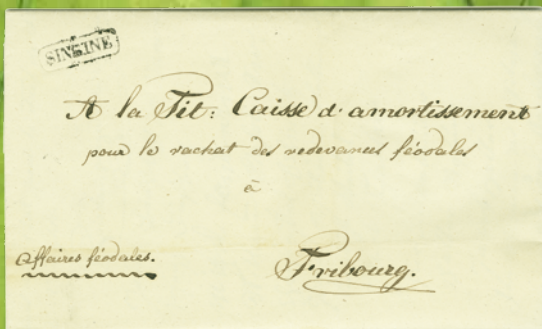 SINGINE
A la Tit: Caisse d'amortissement
pour le rachat des redevances féodales
à
Affaires féodales.
Fribourg.